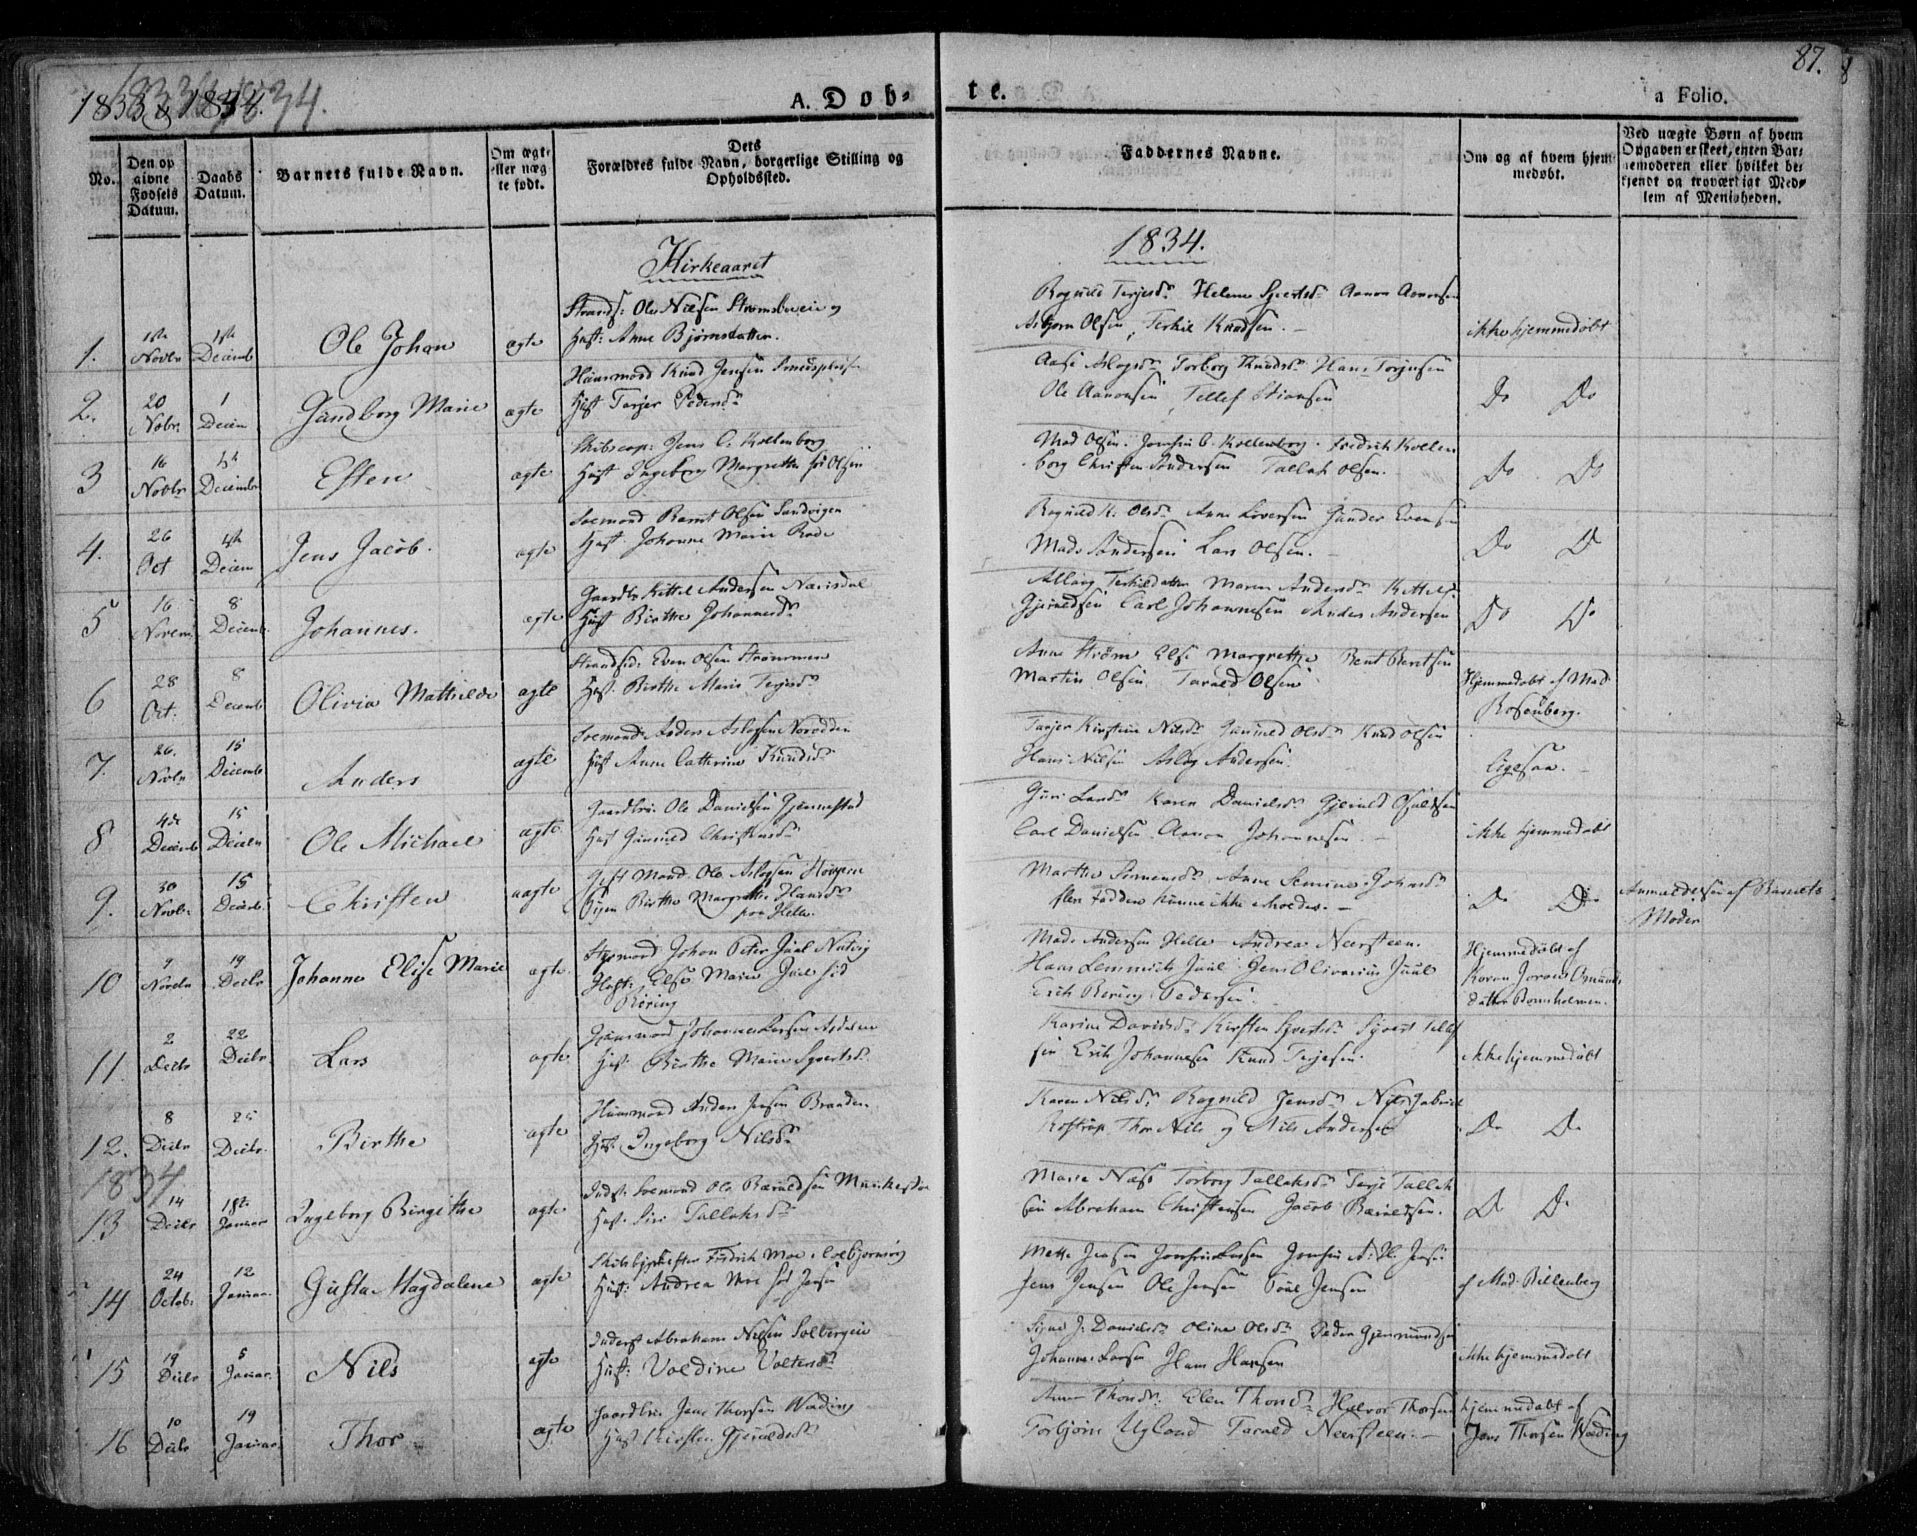 1833 & 1834.
A. Døb-
te.
87.
a Folio.
No.
Den op
givne
Fødsels
Datum.
Daabs
Datum.
Barnets fulde Navn.
Om ægte
eller uæg
te født.
Dets
Forældres fulde Navn, borgerlige Stilling og
Opholdssted.
Faddernes Navne.
Om og af hvem hjem
medøbt.
Ved uægte Børn af hvem
Opgaven er skeet, enten Bar-
nemoderen eller hvilket be-
kjendt og troværdigt Med-
lem af Menigheden.
Kirkeaaret
1834.
1. 1ste Novbr 1ste Decemb Ole Johan ægte
Strands: Ole Nilsen Strømsbueie og
Hust: Anne Bjørnsdatter.
Ragnild Terjesd. Helene Sjvertsd. Aanon Aanonsen
Asbjørn Olsen, Terkil Knudsen.
ikke hjemmedøbt
2. 20 Novbr 1 Decem Gundborg Marie ægte
Huusmand Knud Jensen
Hust Tarjer Pedersd.
Aase Aslagsd. Torborg Knudsd. Hans Terjesen
Ole Aanonsen, Tellef Stiansen
Do Do
3 16 Novbr 1ste Decembr Esten ægte
Skibscap: Jens C. Kallenborg
Hust Ingeborg Margrethe fød Olsen
Mad Olsen. Jomfru C. Kallenborg. Fredrik Kallen
borg Christen Andersen Tallak Olsen.
Do Do
4. 26 Oct 1ste Decem Jens Jacob. ægte
Søemand Bernt Olsen Sandvigen
Hust. Johanne Marie Rode
Ragnild K. Olsd. Anne Gunder Evensen
Mads Andersen Lars Olsen.
Do D
5 16 Novem 8 Decemb. Johannes. ægte
Gaardbr Kittel Andersen Næresdal
Hust Birthe Johannesd.
Terkildatter Maren Andersd. Kittel
Gjeruldsen Carl Johannesen Anders Andersen
Do Do
6 28 Oct. 8 Decemb Olivia Mathilde ægte
Strandsid: Even Olsen Strømmen
Hust. Birthe Marie Terjesd.
Anne Strøm Else Margrethe Bent Berntsen
Martin Olsen. Tarald Olsen
Hjemmedøbt af Mad.
Rosenberg.
7. 26. Novbr 15 Decemb Anders ægte
Søemand Anders Aslagsen Narødden
Hust Anne Cathrine Knudsd.
Tarjer Kirstine Nilsd. Gunild Olsd. Knud Olsen
Hans Nilsen Aslag Andersen.
ligesaa.
8 4de Decemb 15 Decbr Ole Michael ægte
Gaardbr: Ole Danielsen Gjennestad
Hust Gunnild Christensd.
Guri Larsd. Karen Danielsd. Gjeruld Osuldsen
Carl Danielsen. Aanon Johannesen
ikke hjemmedøbt
9. 30 Novbr 15 Decbr Christen uægte
Gift Mand Ole Aslagsen
Pigen Birthe Margrethe Hansd.
fra Helle.
Marthe Simensd. Anne Semine Johnsd.
flere Faddere kunne ikke skrives.
D. Do
Anmeldelsen af Barnets
Moder
10 9 Novbr 19 Decbr Johanne Elise Marie ægte
Johan Peter Juel Narvig
Hust: Else Marie Juel fød
Bering
Mad. Andersen Helle Andrea Neersteen.
Hans Lemmich Juul. Jens Olivarius Juul
Erich Bering Pedersen.
Hjemmedøbt af
Karen Joran Osmunds
datter Bornholmen.
11. 2 Decbr 22 Decbr. Lars ægte
Huusmand Johannes Larsen
Hust. Birthe Marie Syvertsd.
Karine Davidsd. Kirsten Syvertsd. Sjvert Tellef
sen Erik Johannesen Knud Terjesen.
ikke hjemmedøbt
12. 8 Decbr 25 Decbr. Birthe ægte
Huusmand Anders Jensen Braaden
Hust: Ingeborg Nilsd.
Karen Nilsd. Ragnild Jensd. Nils Gabriel
Rostrup Thor Nils og Nils Anderses
D. D.
1834
13 14 Decbr 1ste Januar Ingeborg Birgithe ægte
Inderst: Søemand Ole Bæruldsen
Hust. Siri Tallaksd.
Marie Næss Torborg Tallaksd. Terje Tallak
sen Abraham Christensen Jacob Bæruldsen.
D D.
14 24 Octob: 12 Januar. Gusta Magdalene ægte
Fredrik Moe, Colbjørnsvig
Hust: Andrea Moe fød Jensen
Mette Jensen Jomfru Larsen Jomfru A. H. Jensen
Jens Jensen Ole Jensen Poul Jensen
af Mad. Billenberg
15 19 Decbr 5 Januar. Nils ægte
Inderst Abraham Nilsen Solbergeie
Hust: Voldine Voltersd.
Signe J. Danielsd. Oline Olsd. Peder Gjermundsen
Johannes Larsen Hans Hansen
ikke hjemmedøbt
16 10 Decbr 19 Januar. Thor ægte
Gaardbr: Jens Thorsen Wæding
Hust Kirsten Gjeruldsd.
Anne Thorsd: Elen Thorsd. Halvor Thorsen
Torbjørn Ugland Tarald Neersteen.
hjemmedøbt af
Jens Thorsen Wæding